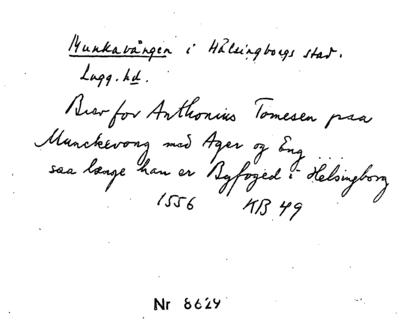 Munkavången i Hälsingborgs stad.
Lugg. hd.
Brev for Anthonius Tomesen paa
Munckevong med Ager og Eng ....
saa længe han er Byfoged i Helsingborg
1556 KB 49
Nr 8629